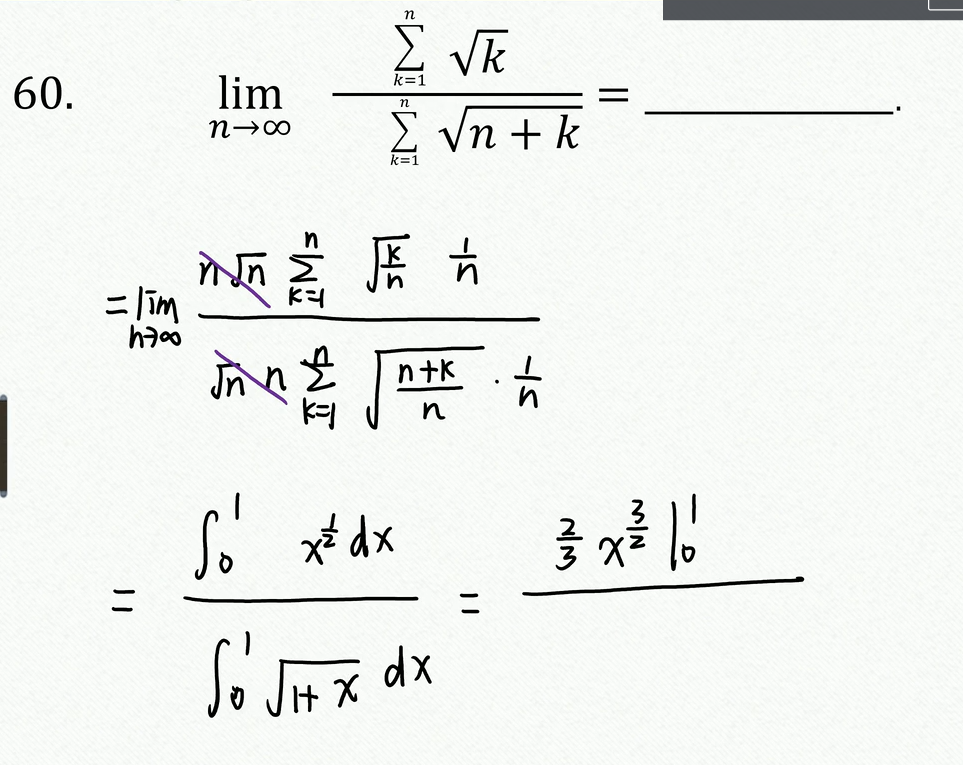 60. lim n→∞ \frac{\sum_{k=1}^{n} \sqrt{k}}{\sum_{k=1}^{n} \sqrt{n+k}} = ____________.
= lim n→∞ \frac{n\sqrt{n} \sum_{k=1}^{n} \sqrt{\frac{k}{n}} \frac{1}{n}}{\sqrt{n} n \sum_{k=1}^{n} \sqrt{\frac{n+k}{n}} \cdot \frac{1}{n}}
= \frac{\int_{0}^{1} x^{\frac{1}{2}} dx}{\int_{0}^{1} \sqrt{1+x} dx} = \frac{\frac{2}{3} x^{\frac{3}{2}} |_{0}^{1}}{}